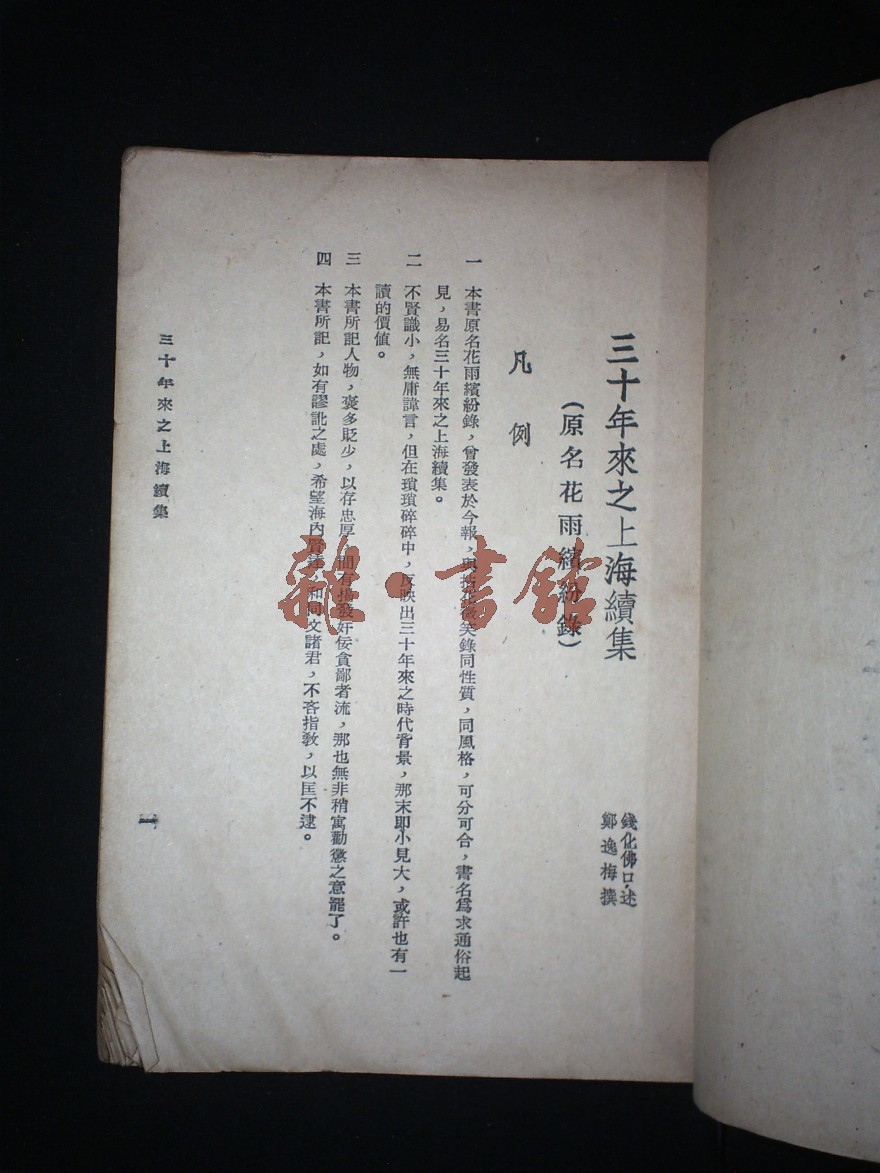 三十年來之上海續集
(原名花雨繽紛錄)
錢化佛口述
鄭逸梅撰
凡例
一 本書原名花雨繽紛錄，曾發表於今報，與拈花微笑錄同性質，同風格，可分可合，書名爲求通俗起
見，易名三十年來之上海續集。
二 不賢識小，無庸諱言，但在瑣瑣碎碎中，反映出三十年來之時代背景，那末即小見大，或許也有一
讀的價值。
三 本書所記人物，褒多貶少，以存忠厚，間有揚發奸佞貪鄙者流，那也無非稍寓勸懲之意罷了。
四 本書所記，如有謬訛之處，希望海內賢達，和同文諸君，不吝指敎，以匡不逮。
三十年來之上海續集
一
雜·書館